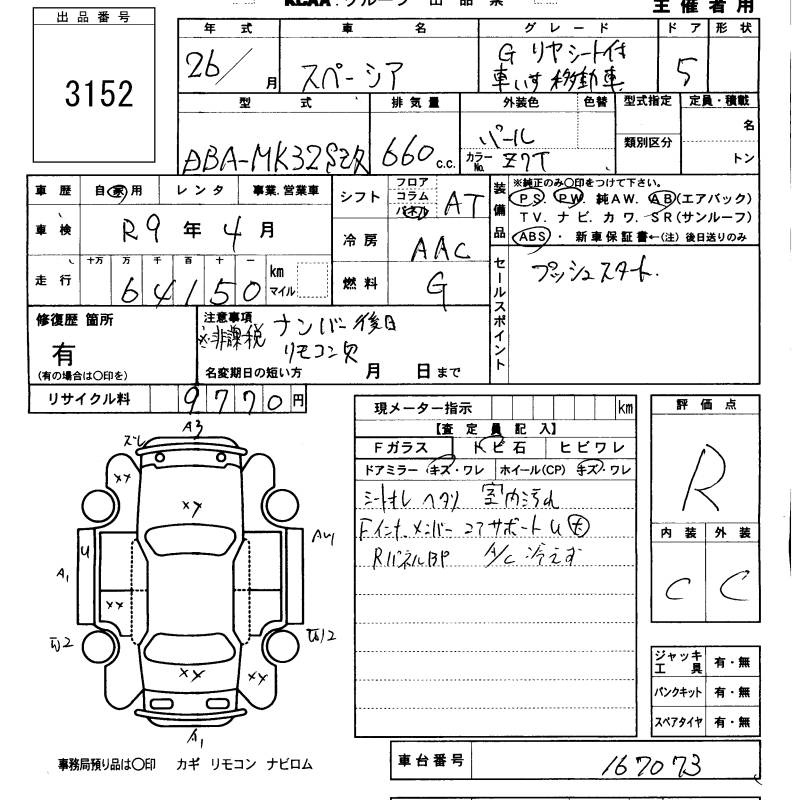 KCAA グループ 出品票
主催者用
出品番号
3152
年式 車名 グレード ドア 形状
26/ 月 スペーシア G リヤシート付 5
車いす移動車
型式 排気量 外装色 色替 型式指定 定員・積載
DBA-MK32S改 660 c.c. パール 類別区分 名
カラーNo. Z7T トン
車歴 自家用 レンタ 事業.営業車
車検 R9年 4月
走行 十万 万 千 百 十 一 km マイル
64150
シフト フロア コラム パネル AT
冷房 AAC
燃料 G
装備品
※純正のみ○印をつけて下さい。
PS. PW. 純AW. AB(エアバック)
TV. ナビ. カワ. SR(サンルーフ)
ABS・ 新車保証書←(注) 後日送りのみ
セールスポイント
プッシュスタート.
修復歴 箇所
有
(有の場合は○印を)
注意事項 ナンバー後日
※非課税 リモコン欠
名変期日の短い方 月 日まで
リサイクル料 9770円
現メーター指示 km
【査定員記入】
Fガラス トビ石 ヒビワレ
ドアミラー キズ・ワレ ホイール(CP) キズ・ワレ
シートオレ ヘタリ 室内汚れ
Fインナ.メンバー コアサポートU
RパネルBP A/C冷えず
評価点
R
内装 外装
C C
ズレ A3
XX
XX
U
A1
XX
XX
XX
A1
ジャッキ工具 有・無
パンクキット 有・無
スペアタイヤ 有・無
事務局預り品は○印 カギ リモコン ナビロム
車台番号 167073